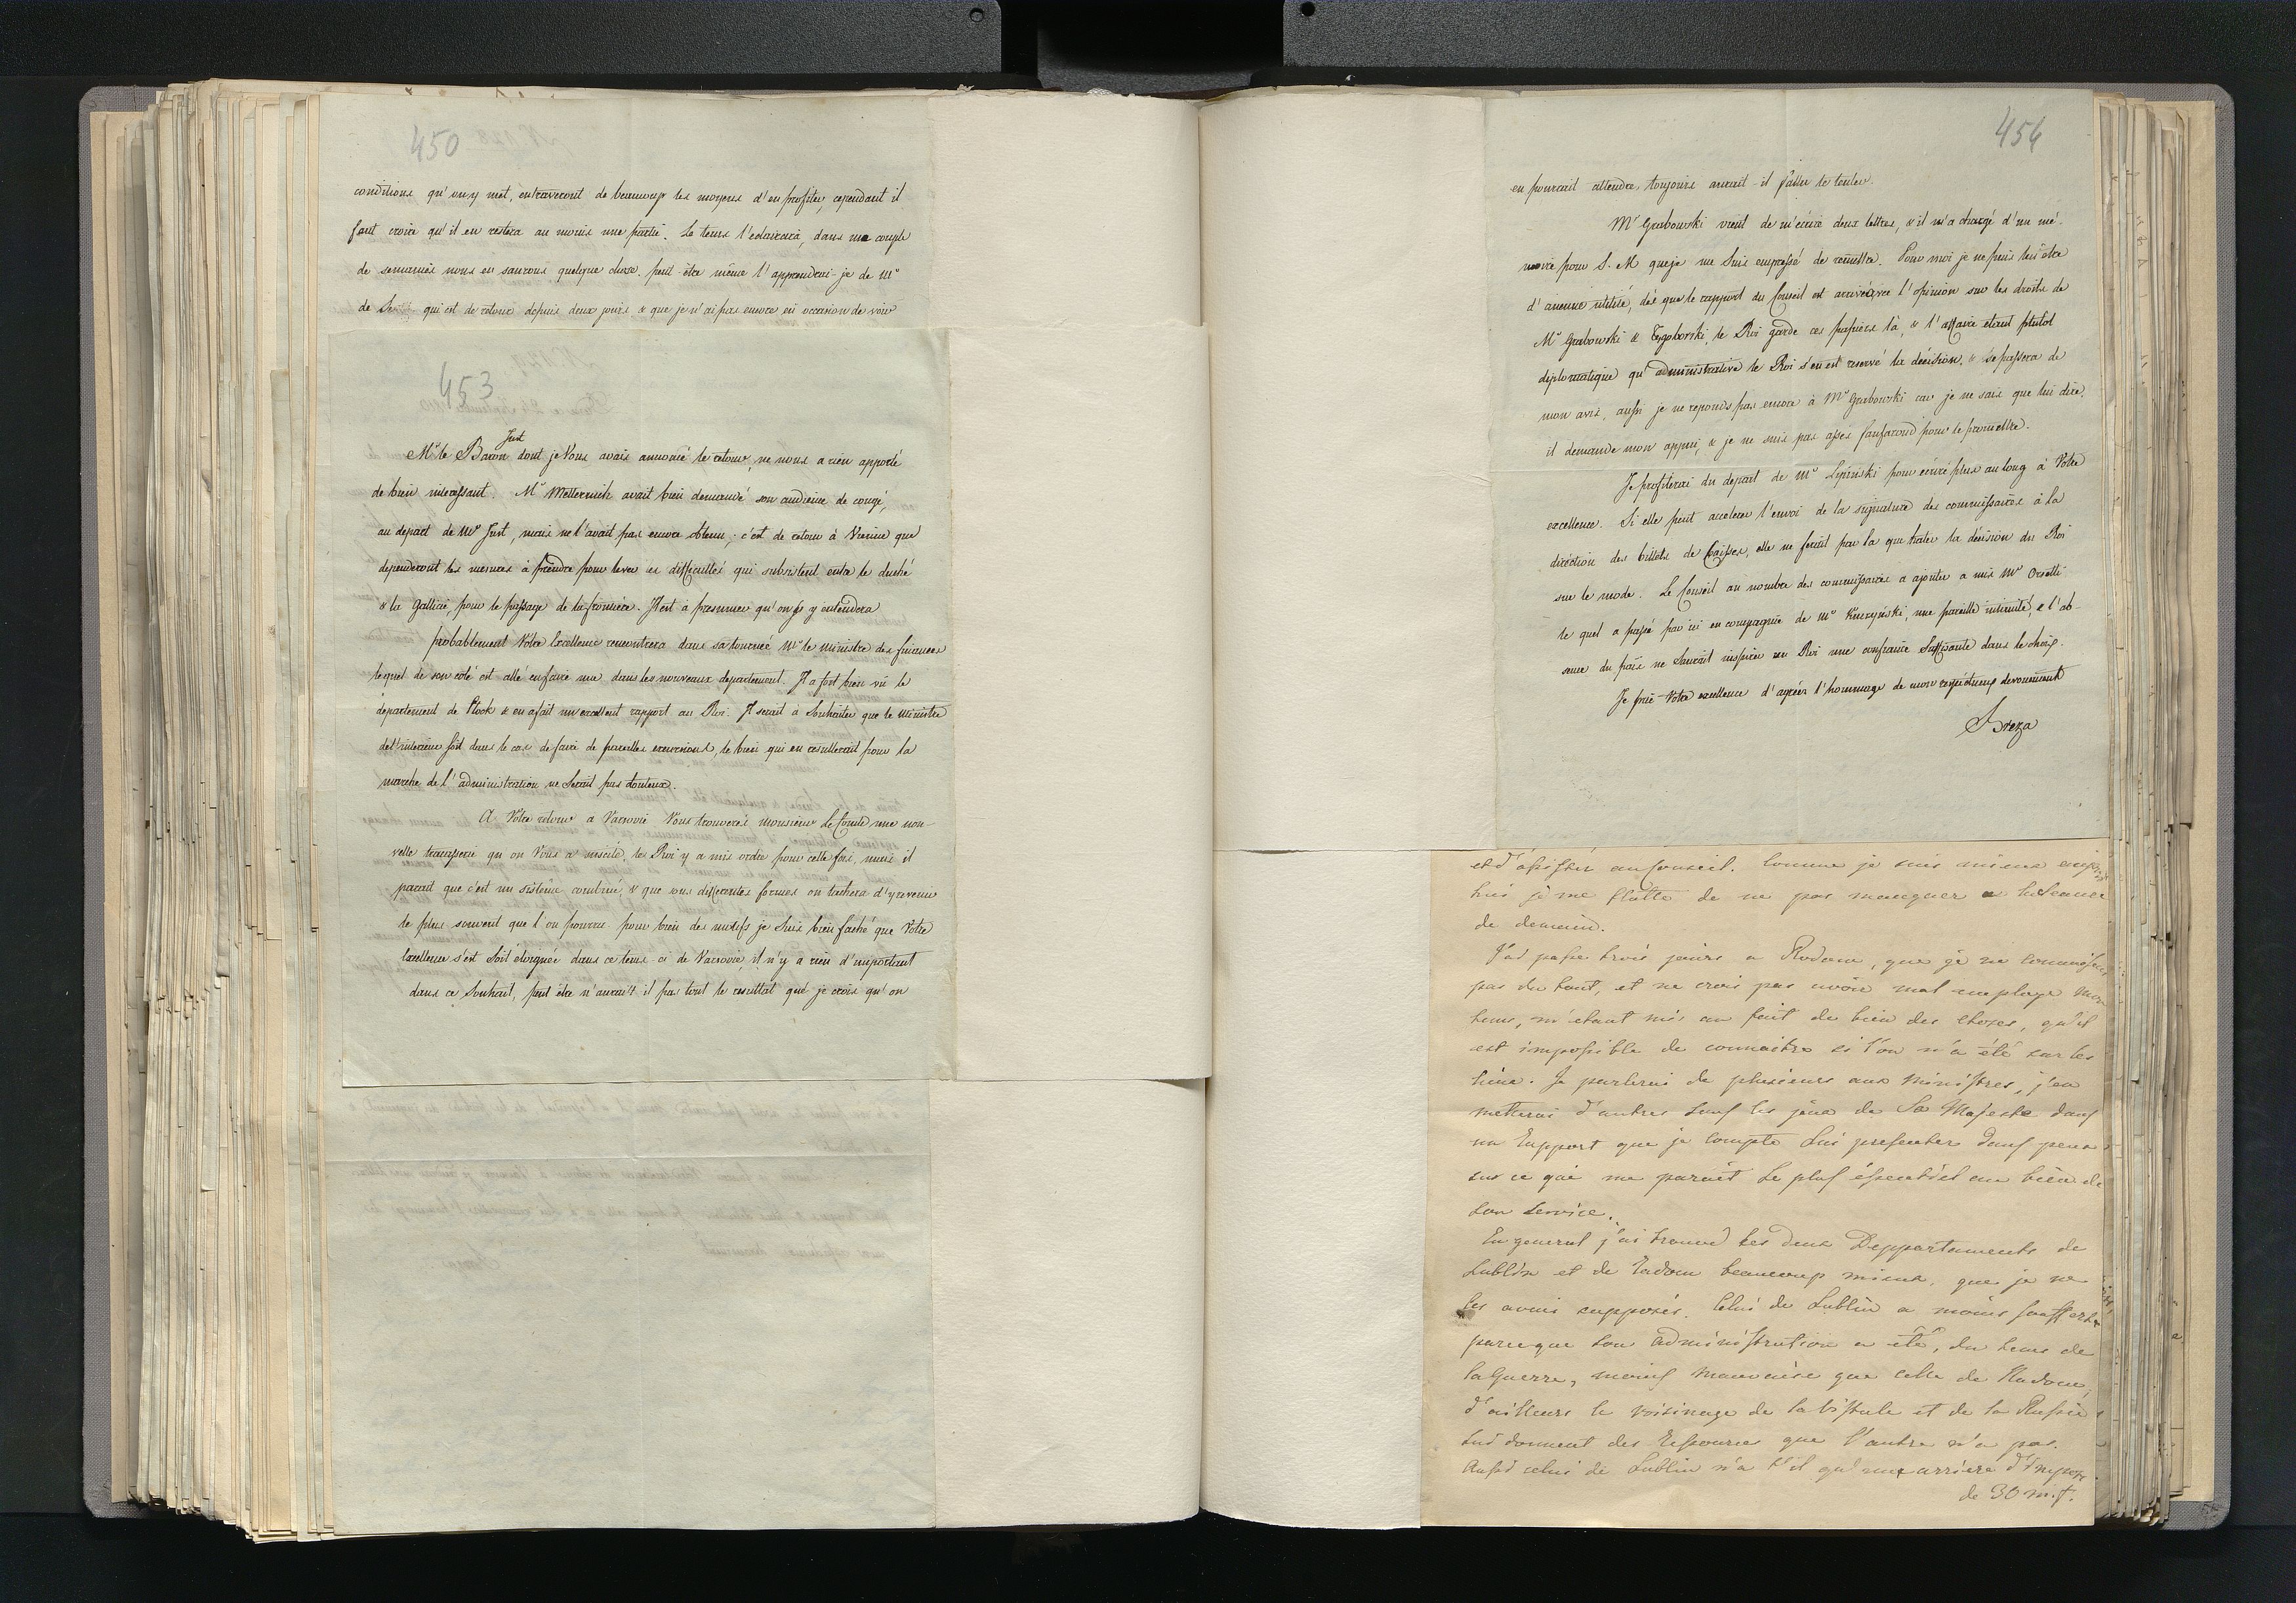 450
conditions qu'on y met, entraveront de beaucoup les moyens d'en profiter, cependant il
faut croire qu'il en restera au moins une partie. Le tems l'eclaircira, dans une couple
de semaines nous en saurons quelque chose. peut-être même l'apprendrai-je de Mr
de qui est de retour depuis deux jours, & que je n'ai pas encore eû occasion de voir
453
Just
Mr le Baron dont je Vous avais annoncé le retour, ne nous a rien apporté
de bien interessant. Mr Metternich avait bien demandé son audience de congé,
au depart de Mr Just, mais ne l'avait pas encore obtenu; c'est de retour à Vienne que
dependeront les mesures à prendre pour lever les difficultés qui subsistent entre le duché
& la Gallicie, pour le passage de la frontière. Il est à presumer qu'on s'y entendera
probablement Votre Excellence rencontrera dans sa tournée Mr le Ministre des finances
lequel de son coté est allé en faire une dans les nouveaux departement. Il a fort bien vû le
departement de Plock & en a fait un excellent rapport au Roi. Il serait à Souhaiter que le Ministre
de l'interieur soit dans le cas de faire de pareilles excursions, le bien qui en resulterait pour la
marche de l'administration ne serait pas douteux.
A Votre retour a Varsovie Vous trouverés Monsieur le Comte une nou-
velle tracasserie qu on Vous a suscité, le Roi y a mis ordre pour cette fois, mais il
parait que c'est un sistême combiné, & que sous differentes formes on tachera d'y revenir
le plus souvent que l'on pourra. pour bien des motifs je suis bien faché que Votre
Excellence s'est soit éloignée dans ce tems-ci de Varsovie, il n'y a rien d'important
dans ce Souhait, peut être n'aurait il pas tout le resultat que je crois qu'on
454
en pourrait attendre, toujours aurait-il fallu le tenter.
Mr Grabowski vient de m'écrire deux lettres, & il m'a chargé d'un mé-
moire pour S. M que je me suis empressé de remettre. Pour moi je ne puis lui être
d'aucune utilité, dès que le rapport du Conseil est arrivé avec l'opinion sur les droits de
Mr Grabowski & Tęgoborski, le Roi garde ces papiers là, & l'affaire etant plutot
diplomatique qu'administrative le Roi s'en est reservé la décision, & se passera de
mon avis, aussi je ne reponds pas encore à Mr Grabowski car je ne sais que lui dire,
il demande mon appui, & je ne suis pas assés fanfarond pour le promettre.
Je profiterai du depart de Mr Lipiński pour écrire plus au long à Votre
excellence. Si elle peut accelerer l'envoi de la signature des commissaires à la
diréction des billets de Caisses, elle ne ferait par la que hater la décision du Roi
sur le mode. Le Conseil au nombre des commissaires a ajouter a mis Mr Orsetti
le quel a passé par ici en compagnie de Mr une pareille intimité, & l'ab-
sence du païs ne saurait inspirer au Roi une confiance suffisante dans le choix.
Je prie Votre excellence d'agréer l'hommage de mon respectueux devouement
Breza
et d'assister au Conseil. Comme je suis mieux
hui je me flatte de ne pas manquer a la Seance
de demain.
J'ai passé trois jours a Radom, que je ne connaissais
pas du tout, et ne crois pas avoir mal employe mon
tems, m'etant mis au fait de bien des choses, qu'il
est impossible de connaitre si l'on n'a été sur les
lieux. Je parlerai de plusieurs aux Ministres, j'en
metterai d'autres sous les yeux de Sa Majesté dans
un Rapport que je compte Lui presenter dans peu
sur ce qui me parait le plus éssentiel au bien de
Son Service.
En general j'ai trouvé les deux Deppartements de
Lublin et de Radom beaucoup mieux, que je ne
les avais supposés. Celui de Lublin a moins souffert
parceque son administration a été, du tems de
la Guerre, moins mauvaise que celle de Radom,
d'ailleurs le voisinage de la Vistule et de la Russie
lui donnent des Ressources que l'autre n'a pas.
Aussi celui de Lublin n'a t'il qu'un arriére d'Impots
de 30 m. f.